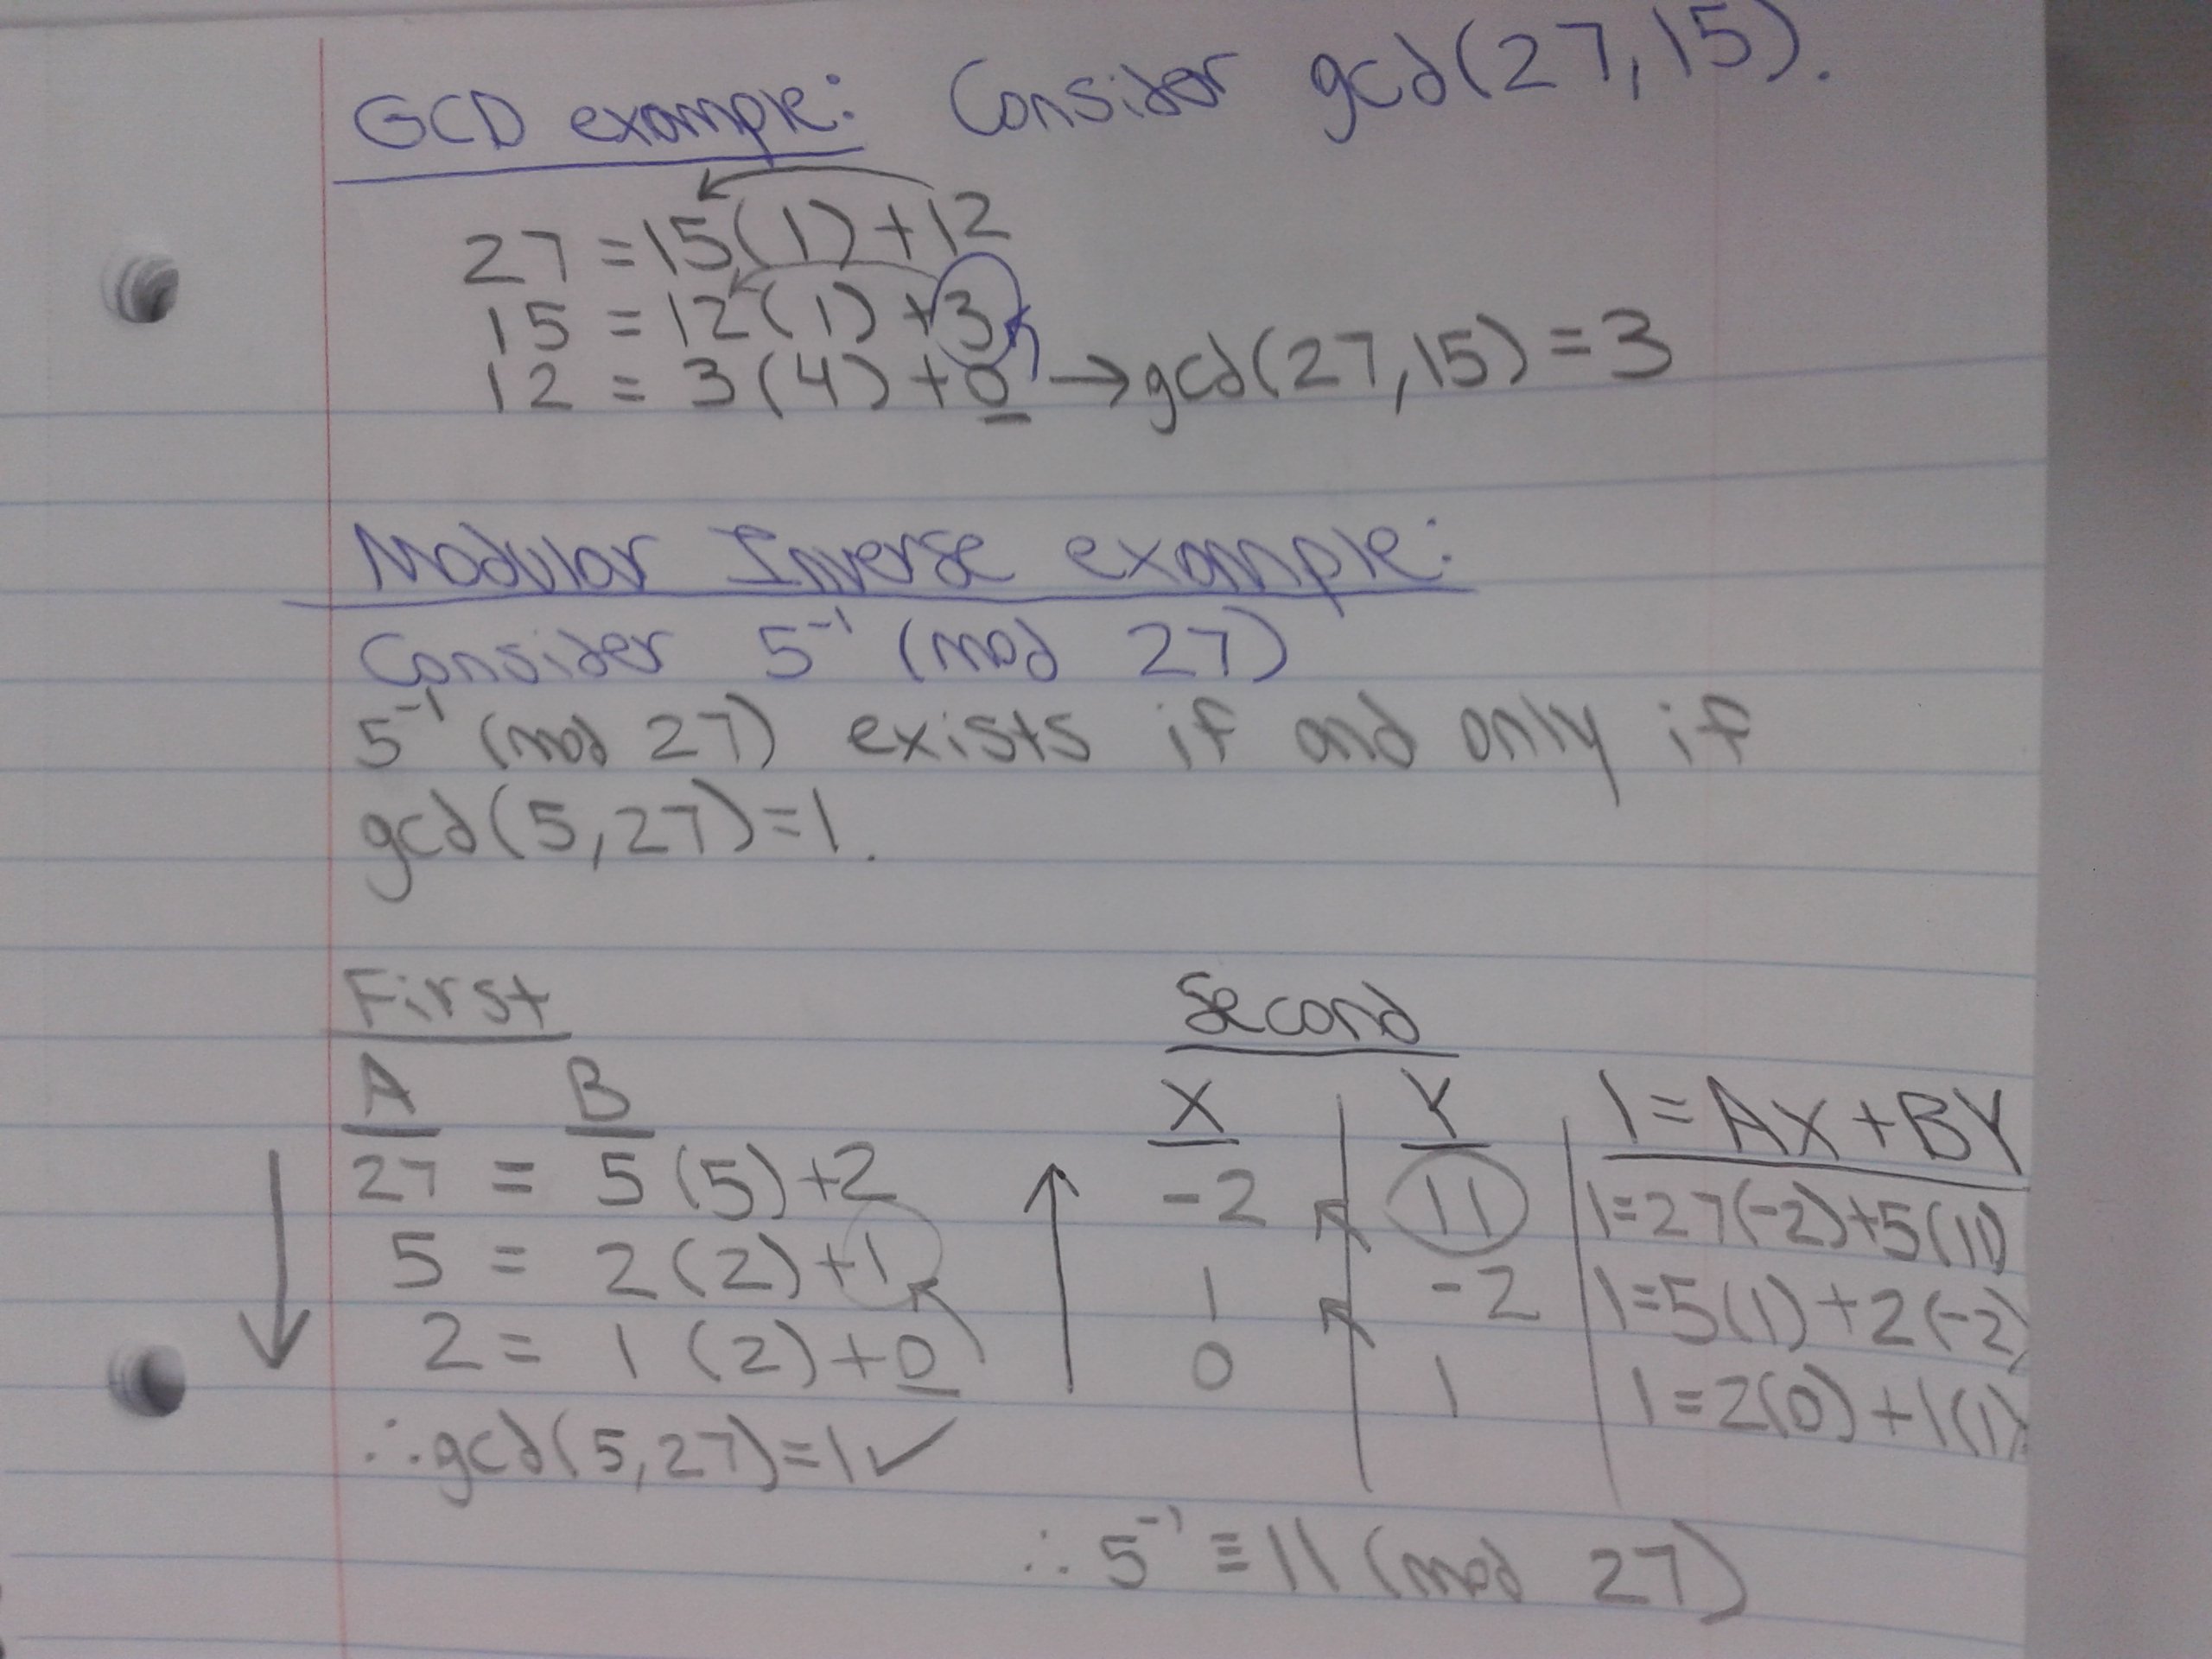 GCD example: Consider gcd(27,15).
27 = 15(1)+12
15 = 12(1)+3
12 = 3(4)+0 → gcd(27,15)=3
Modular Inverse example:
Consider 5⁻¹ (mod 27)
5⁻¹ (mod 27) exists if and only if
gcd(5,27)=1.
First
A B
27 = 5(5)+2
5 = 2(2)+1
2 = 1(2)+0
∴ gcd(5,27)=1✓
Second
X Y 1=AX+BY
-2 11 1=27(-2)+5(11)
1 -2 1=5(1)+2(-2)
0 1 1=2(0)+1(1)
∴ 5⁻¹ ≡ 11 (mod 27)